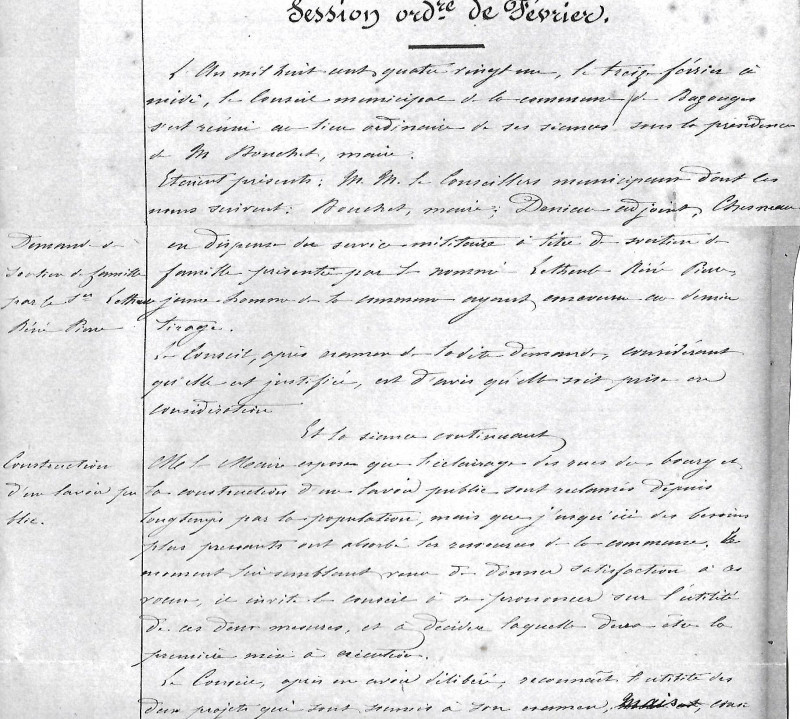 Session ordre de Février.
L'An mil huit cent quatre vingt un, le treize février à
midi, le Conseil municipal de la commune de Bazouges
s'est réuni au lieu ordinaire de ses séances sous la présidence
de M Bouchet, maire.
Etaient présents: M.M. le Conseillers municipaux dont les
noms suivent: Bouchet, maire; Denieu adjoint, Chesneau
Demande de
soutien de famille
par le Sr
Réné Pierre
en dispense du service militaire à titre de soutien de
famille présentée par le nommé Réné Pierre,
jeune homme de la commune ayant concouru au dernier
tirage.
Le Conseil, après examen de ladite demande, considérant
qu'elle est justifiée, est d'avis qu'elle soit prise en
considération
Et la séance continuant
Construction
d'un lavoir pu
blic.
M. le Maire expose que l'éclairage des rues du bourg et
la construction d'un lavoir public sont réclamés depuis
longtemps par la population, mais que jusqu'ici des besoins
plus pressants ont absorbé les ressources de la commune. Le
moment lui semblant venu de donner satisfaction à ces
voeux, il invite le conseil à se prononcer sur l'utilité
de ces deux mesures, et à décider laquelle devra être la
première mise à exécution.
Le Conseil, après en avoir délibéré, reconnaît l'utilité des
deux projets qui sont soumis à son examen, mais